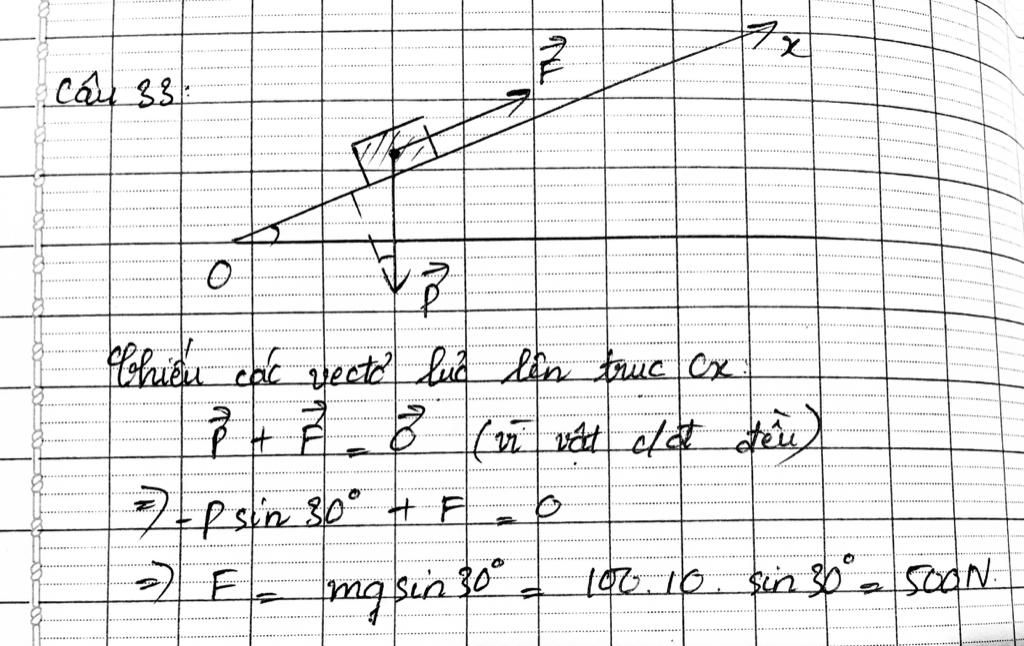 Câu 33:
F
x
O
P
Chiếu các vectơ lực lên trục Ox:
P + F = 0 (vì vật c/đ đều)
=> -P sin 30° + F = 0
=> F = mg sin 30° = 100.10. sin 30° = 500N.